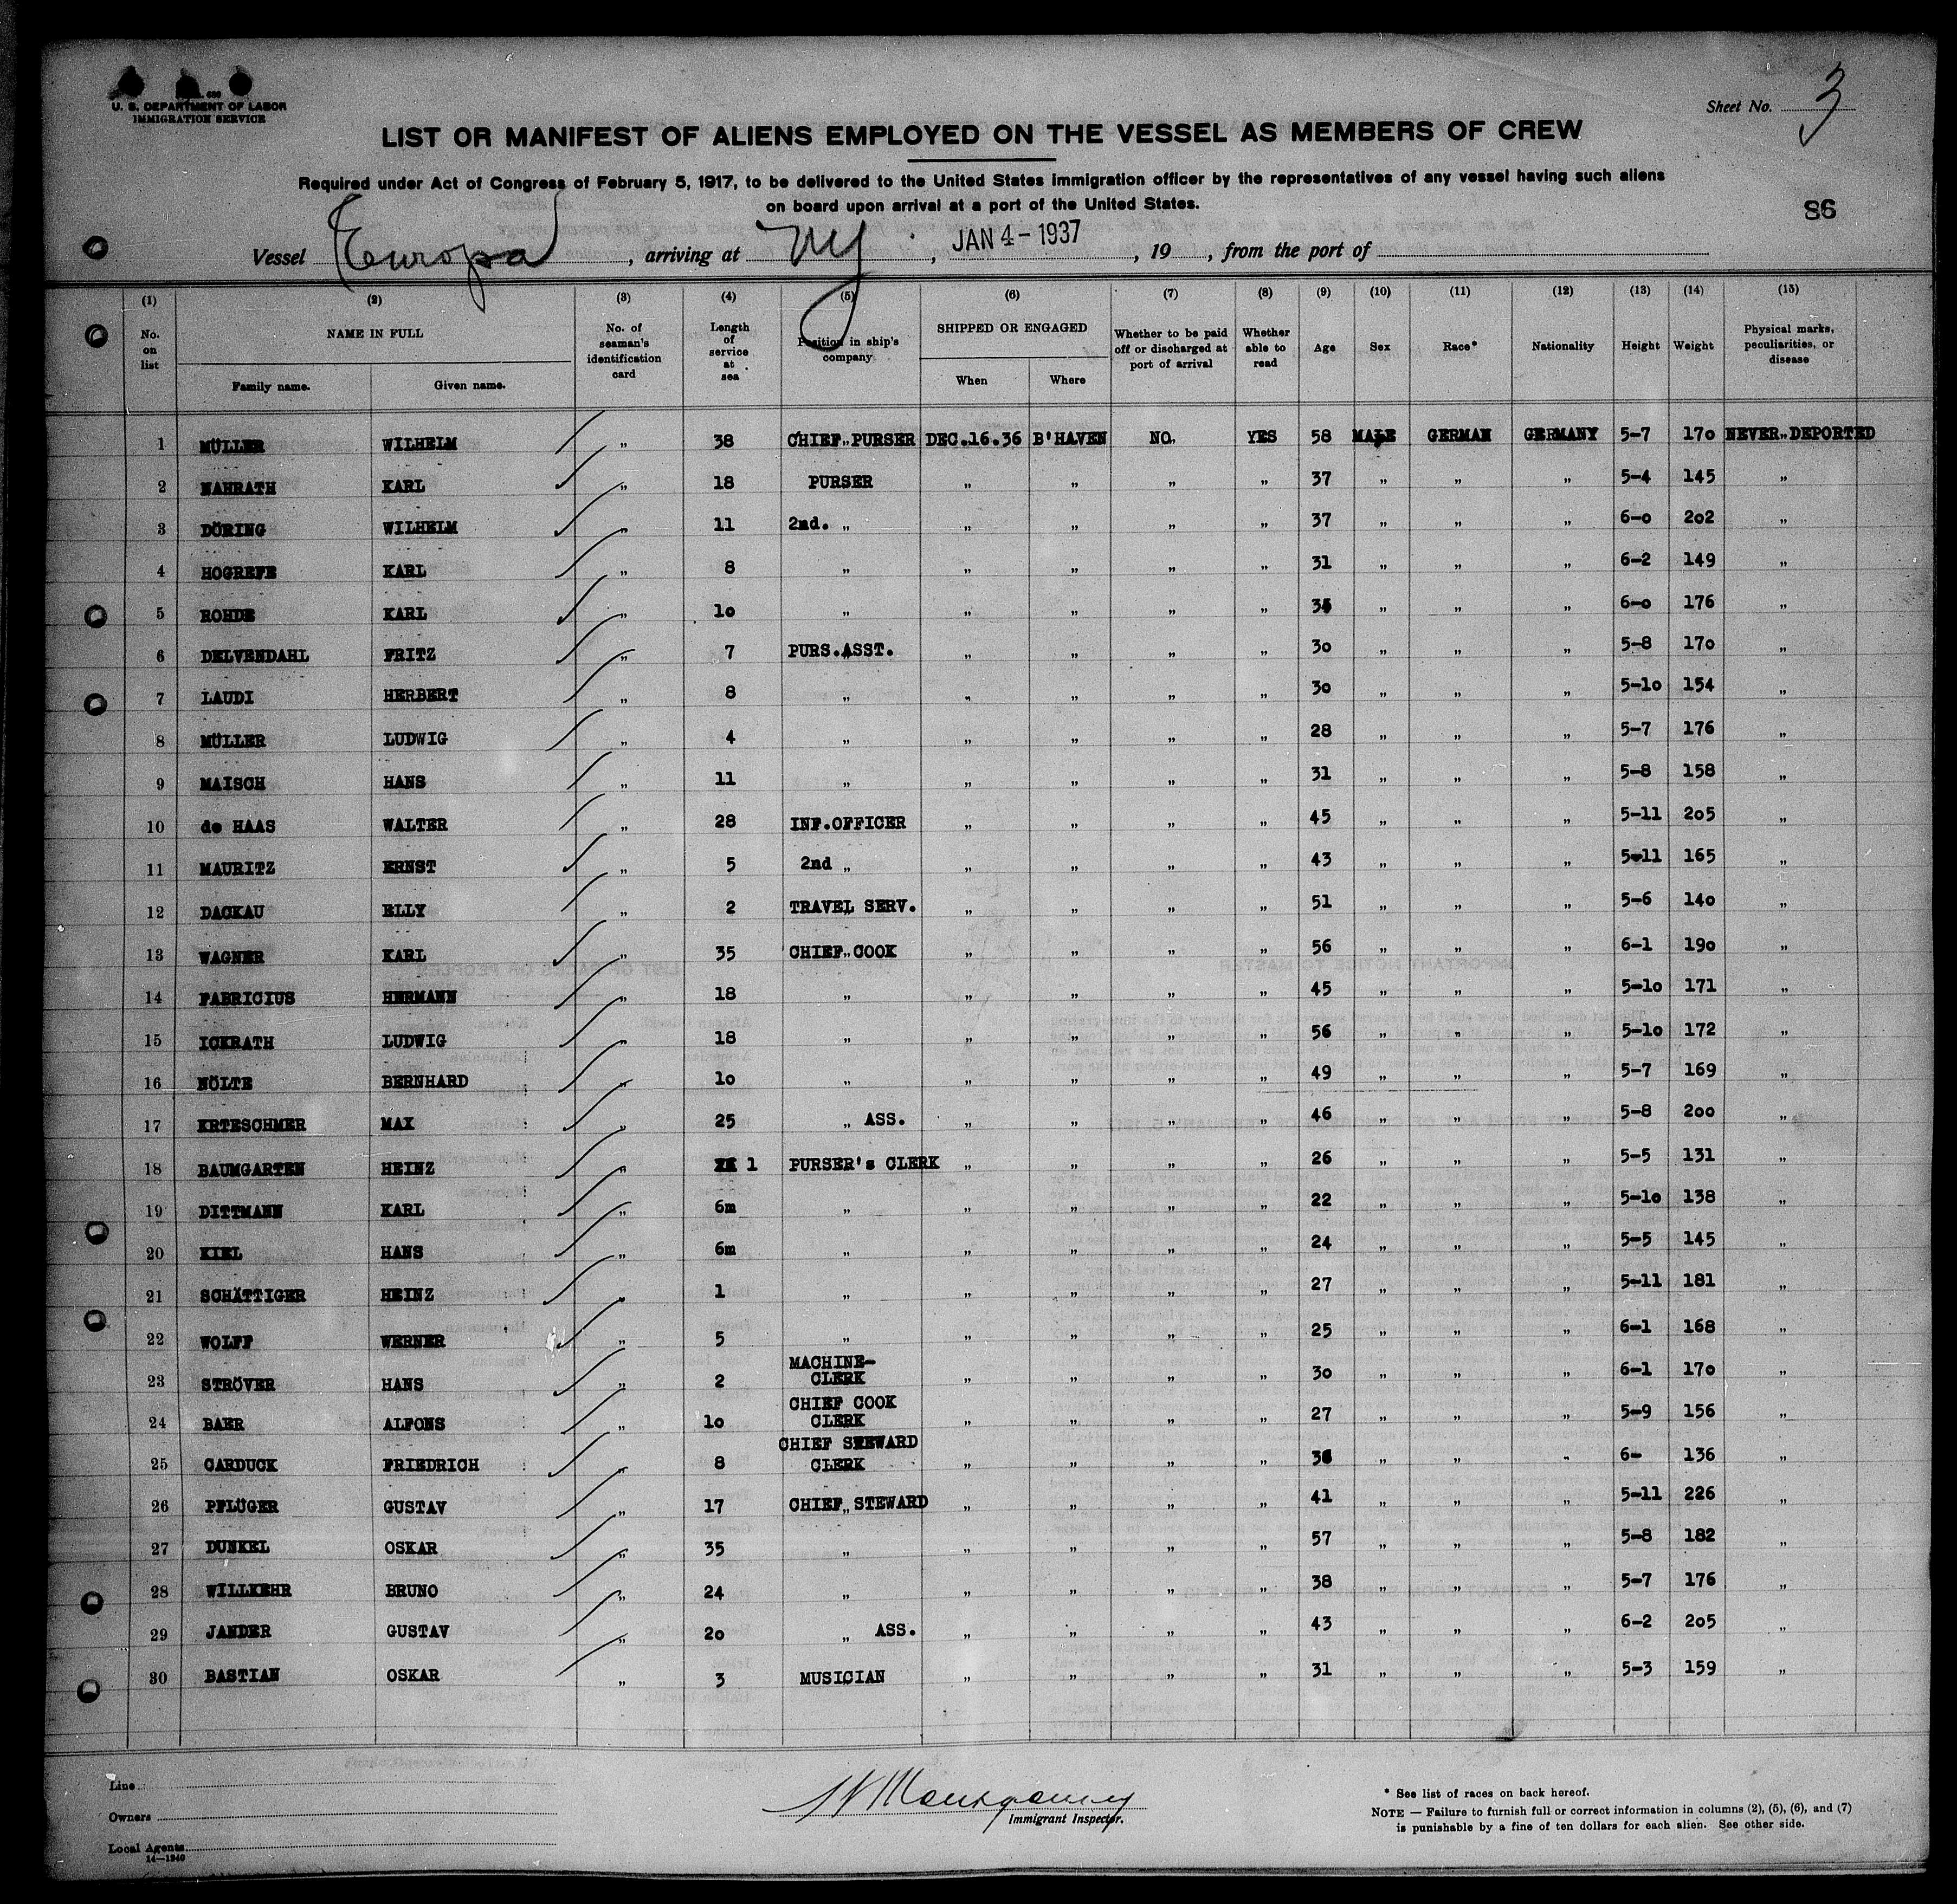 680
U. S. DEPARTMENT OF LABOR
IMMIGRATION SERVICE
Sheet No. 3
LIST OR MANIFEST OF ALIENS EMPLOYED ON THE VESSEL AS MEMBERS OF CREW
Required under Act of Congress of February 5, 1917, to be delivered to the United States immigration officer by the representatives of any vessel having such aliens
on board upon arrival at a port of the United States.
86
Vessel Europa, arriving at NY, JAN 4-1937, 19, from the port of
(1) (2) (3) (4) (5) (6) (7) (8) (9) (10) (11) (12) (13) (14) (15)
No. on list NAME IN FULL Family name. Given name. No. of seaman's identification card Length of service at sea Position in ship's company SHIPPED OR ENGAGED When Where Whether to be paid off or discharged at port of arrival Whether able to read Age Sex Race* Nationality Height Weight Physical marks, peculiarities, or disease
1 MÜLLER WILHELM „ 38 CHIEF„PURSER DEC.16.36 B'HAVEN NO. YES 58 MALE GERMAN GERMANY 5-7 170 NEVER„DEPORTED
2 NAHRATH KARL „ 18 PURSER „ „ „ „ 37 „ „ „ 5-4 145 „
3 DÖRING WILHELM „ 11 2nd. „ „ „ „ „ 37 „ „ „ 6-0 202 „
4 HOGREFE KARL „ 8 „ „ „ „ „ 31 „ „ „ 6-2 149 „
5 ROHDE KARL „ 10 „ „ „ „ „ „ „ „ 6-0 176 „
6 DELVENDAHL FRITZ „ 7 PURS.ASST. „ „ „ „ 30 „ „ „ 5-8 170 „
7 LAUDI HERBERT „ 8 „ „ „ „ „ 30 „ „ „ 5-10 154 „
8 MÜLLER LUDWIG „ 4 „ „ „ „ „ 28 „ „ „ 5-7 176 „
9 MAISCH HANS „ 11 „ „ „ „ „ 31 „ „ „ 5-8 158 „
10 de HAAS WALTER „ 28 INF.OFFICER „ „ „ „ 45 „ „ „ 5-11 205 „
11 MAURITZ ERNST „ 5 2nd „ „ „ „ „ 43 „ „ „ 5-11 165 „
12 DACKAU ELLY „ 2 TRAVEL SERV. „ „ „ „ 51 „ „ „ 5-6 140 „
13 WAGNER KARL „ 35 CHIEF„COOK „ „ „ „ 56 „ „ „ 6-1 190 „
14 FABRICIUS HERMANN „ 18 „ „ „ „ „ 45 „ „ „ 5-10 171 „
15 ICKRATH LUDWIG „ 18 „ „ „ „ „ 56 „ „ „ 5-10 172 „
16 NÖLTE BERNHARD „ 10 „ „ „ „ „ 49 „ „ „ 5-7 169 „
17 KRTESCHMER MAX „ 25 „ ASS. „ „ „ „ 46 „ „ „ 5-8 200 „
18 BAUMGARTEN HEINZ „ 1 PURSER's CLERK „ „ „ „ 26 „ „ „ 5-5 131 „
19 DITTMANN KARL „ 6m „ „ „ „ „ 22 „ „ „ 5-10 138 „
20 KIEL HANS „ 6m „ „ „ „ „ 24 „ „ „ 5-5 145 „
21 SCHÄTTIGER HEINZ „ 1 „ „ „ „ „ 27 „ „ „ 5-11 181 „
22 WOLFF WERNER „ 5 „ „ „ „ „ 25 „ „ „ 6-1 168 „
23 STRÖVER HANS „ 2 MACHINE-CLERK „ „ „ „ 30 „ „ „ 6-1 170 „
24 BAER ALFONS „ 10 CHIEF COOK CLERK „ „ „ „ 27 „ „ „ 5-9 156 „
25 CARDUCK FRIEDRICH „ 8 CHIEF STEWARD CLERK „ „ „ „ „ „ „ 6- 136 „
26 PFLÜGER GUSTAV „ 17 CHIEF„STEWARD „ „ „ „ 41 „ „ „ 5-11 226 „
27 DUNKEL OSKAR „ 35 „ „ „ „ „ 57 „ „ „ 5-8 182 „
28 WILLKEHR BRUNO „ 24 „ „ „ „ „ 38 „ „ „ 5-7 176 „
29 JANDER GUSTAV „ 20 „ ASS. „ „ „ „ 43 „ „ „ 6-2 205 „
30 BASTIAN OSKAR „ 3 MUSICIAN „ „ „ „ 31 „ „ „ 5-3 159 „
Line
Owners
Local Agents
14-1240
Montgomery
Immigrant Inspector.
* See list of races on back hereof.
NOTE — Failure to furnish full or correct information in columns (2), (5), (6), and (7)
is punishable by a fine of ten dollars for each alien. See other side.